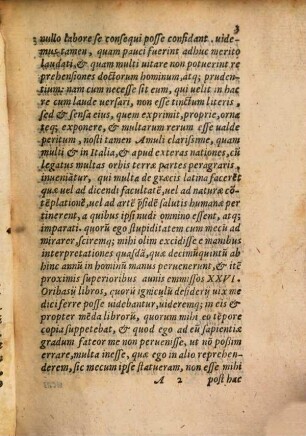 3
nullo labore se consequi posse confidant. uide-
mus tamen, quam pauci fuerint adhuc merito
laudati, & quam multi uitare non potuerint re
prehensiones doctorum hominum, atq; pruden-
tium: nam cum necesse sit eum, qui uelit in hac
re cum laude uersari, non esse tinctum literis,
sed & sensa eius, quem exprimit, proprie, ornate
teq; exponere, & multarum rerum esse ualde
peritum, nosti tamen Amuli clarissime, quam
multi & in Italia, & apud exteras nationes, cũ
legatus multas orbis terræ partes peragraris,
inueniãtur, qui multa de græcis latina faceret
quæ uel ad dicendi facultatẽ, uel ad naturæ cõ-
tẽplationẽ, uel ad artẽ p̃sidẽ salutis humanæ per
tinerent, a quibus ipsi nudi omnino essent, atq;
imparati. quorũ ego stupiditatem cum mecũ ad
mirarer sciremq; mihi olim excidisse e manibus
interpretationes quasdã, quæ decimũquintũ ab
hinc annũ in hominũ manus peruenerunt, & itẽ
proximis superioribus annis emmissos XXVI.
Oribasij libros, quorũ igniculũ desiderij uix me
dici ferre posse uidebantur, uideremq; in eis &
propter mẽda librorũ, quorum mihi eo tẽpore
copia suppetebat, & quod ego ad eũ sapientiæ
gradum fateor me non peruenisse, ut nõ possim
errare, multa inesse, quæ ego in alio reprehen-
derem, sic mecum ipse statueram, non esse mihi
A 2 post hac